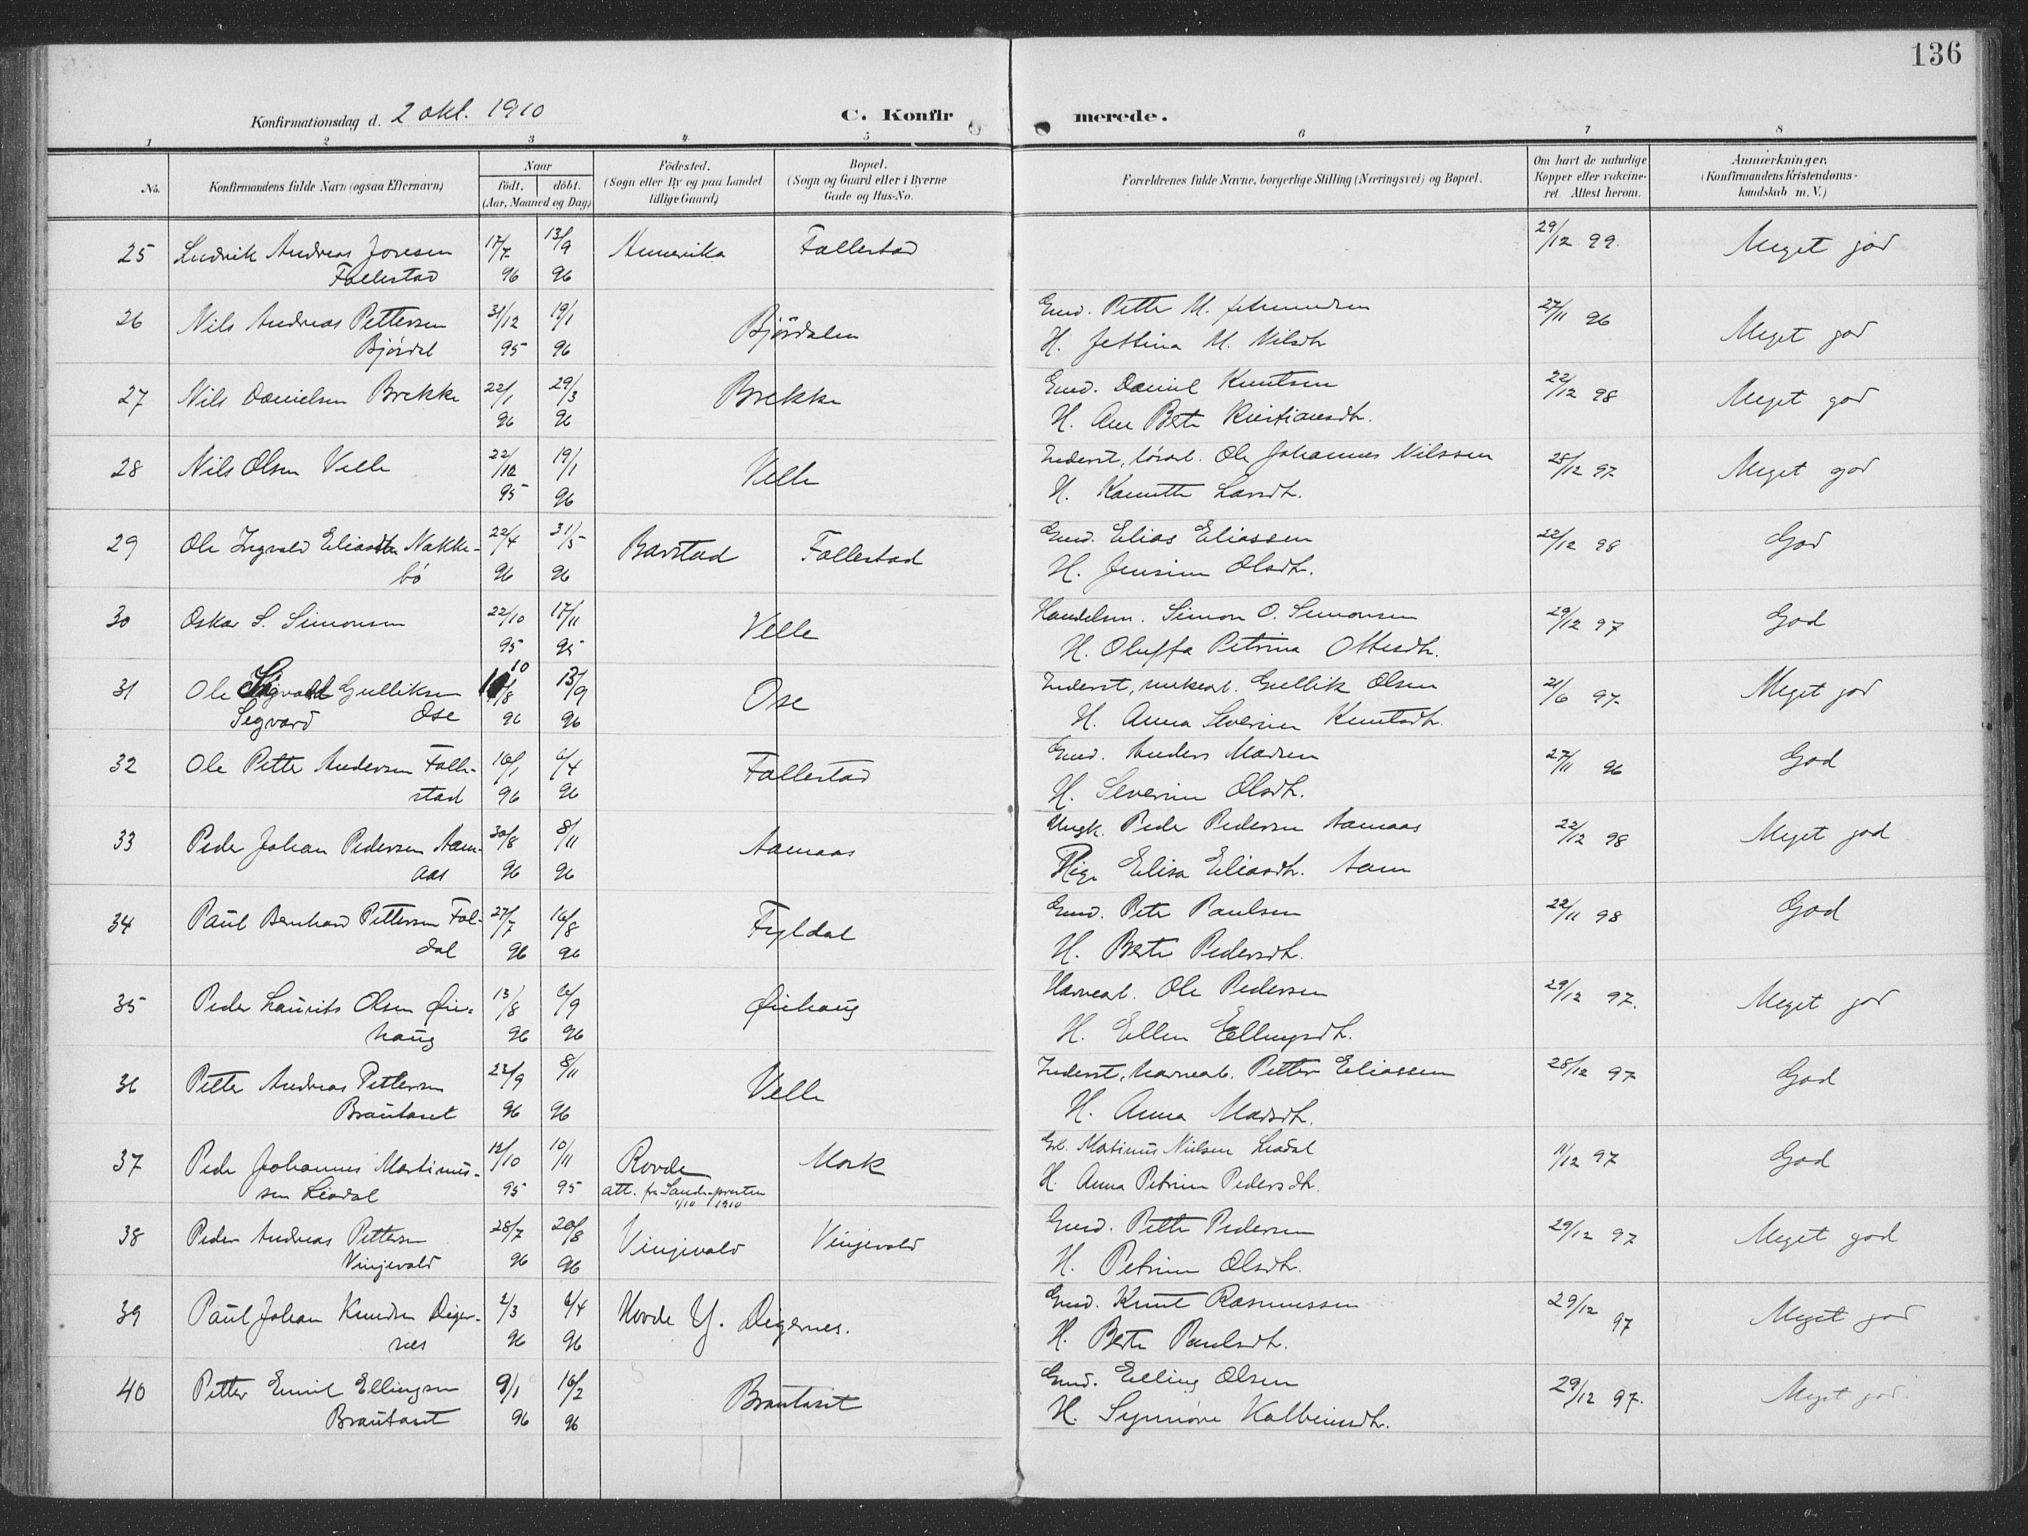 136
Konfirmationsdag d. 2 okt. 1910
C. Konfir merede.
1 2 3 4 5 6 7 8
No. Konfirmandens fulde Navn (ogsaa Efternavn) Naar født, døbt. (Aar, Maaned og Dag) Fødested. (Sogn eller By og paa Landet tillige Gaard) Bopæl. (Sogn og Gaard eller i Byerne Gade og Hus-No. Forældrenes fulde Navne, borgerlige Stilling (Næringsvei) og Bopæl. Om havt de naturlige Kopper eller vakcineret Attest herom. Anmærkninger, (Konfirmandens Kristendomskundskab m. V.)
25 Ludvik Andreas 17/7 13/9 Amerika Follestad 29/12 99. Meget god
Follestad 96 96
26 Nils Andreas Pettersen 31/12 19/1 Bjørdalen Gmd. Petter M. 27/11 96 Meget god
Bjørdal 95 96 H. Jettina M. Nilsdtr
27 Nils Danielsen Brekke 22/1 29/3 Brekke Gmd. Daniel Knutsen 22/12 98 Meget god
96 96 H. Ane Berte Kristiansdtr.
28 Nils Olsen Velle 22/12 19/1 Velle Inderst, løsarb. Ole Johannes Nilssen 28/12 97 Meget god
95 96 H. Larsdtr.
29 Ole Ingvald Nakke- 22/4 31/5 Barstad Follestad Gmd. Elias Eliassen 22/12 98 God
bø 96 96 H. Jensine Olsdtr.
30 Oskar S. Simonsen 22/10 17/11 Velle Handelsm. Simon O. Simonsen 29/12 97 God
95 95 H. Oluffa Petrina Ottesdtr.
31 Ole Gulliksen 10 13/9 Ose Inderst, Gullik Olsen 21/6 97. Meget god
Segvard Ose 96 96 H. Anna Severine Knutsdtr.
32 Ole Petter Andersen Folle- 16/1 6/4 Follestad Gmd. Anders Madsen 27/11 96 God
stad 96 96 H. Severine Olsdtr.
33 Peder Johan Pedersen Aam- 30/8 8/11 Aamaas Ungk. Peder Pedersen Aamaas 22/12 98 Meget god
aas 96 96 Pige Elisa Eliasdtr. Aam
34 Paul Bernhard Pettersen Fol- 27/7 16/8 Fyldal Gmd. Peter Paulsen 22/11 98 God
dal 96 96 H. Berte Pedersdtr.
35 Peder Laurits Olsen Øie- 13/8 6/9 Øiehaug Havnearb. Ole Pedersen 29/12 97. Meget god
haug 96 96 H. Ellen Ellingsdtr.
36 Petter Andreas Pettersen 23/9 8/11 Velle Inderst, havnearb. Petter Eliassen 28/12 97 God
Brautaset 96 96 H. Anna Madsdtr.
37 Peder Johannes Martinus- 12/10 10/11 Rovde Mork Gb. Martinus Nielsen Liadal 11/12 97 God
sen Liadal 95 95 att. fra Sande-presten 1/10 1910 H. Anna Petrine Pedersdtr.
38 Peder Andreas Pettersen 28/7 20/8 Vinjevold Vinjevold Gmd. Petter Pedersen 29/12 97 Meget god
Vinjevold 96 96 H. Petrine Olsdtr.
39 Paul Johan Knudsen Diger- 2/3 6/4 Hovde Y. Digernes. Gmd. Knut Rasmussen 29/12 97 Meget god
nes 96 96 H. Berte Paulsdtr.
40 Petter Emil Ellingsen 9/1 16/2 Brautaset Gmd. Elling Olsen 29/12 97. Meget god.
Brautaset 96 96 H. Synnøve Kolbeinsdtr.